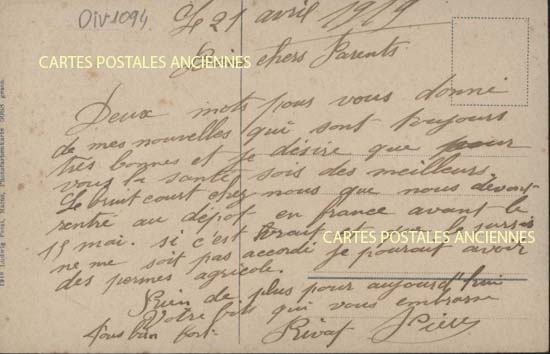 Div1094
Le 21 avril 1919
Bien chers Parents
CARTES POSTALES ANCIENNES
Deux mots pour vous donné
de mes nouvelles qui sont toujours
très bonnes et je désire que pour
vous la santé sois des meilleurs.
Le bruit court chez nous que nous devons
rentré au dépot en france avant le
15 mai. si c'est vrait le sursis
CARTES POSTALES ANCIENNES
ne me soit pas accordé je pourait avoir
des permes agricole.
Rien de plus pour aujourd'hui
Votre fils qui vous embrasse
Tous bien fort.
Rivat Pierre